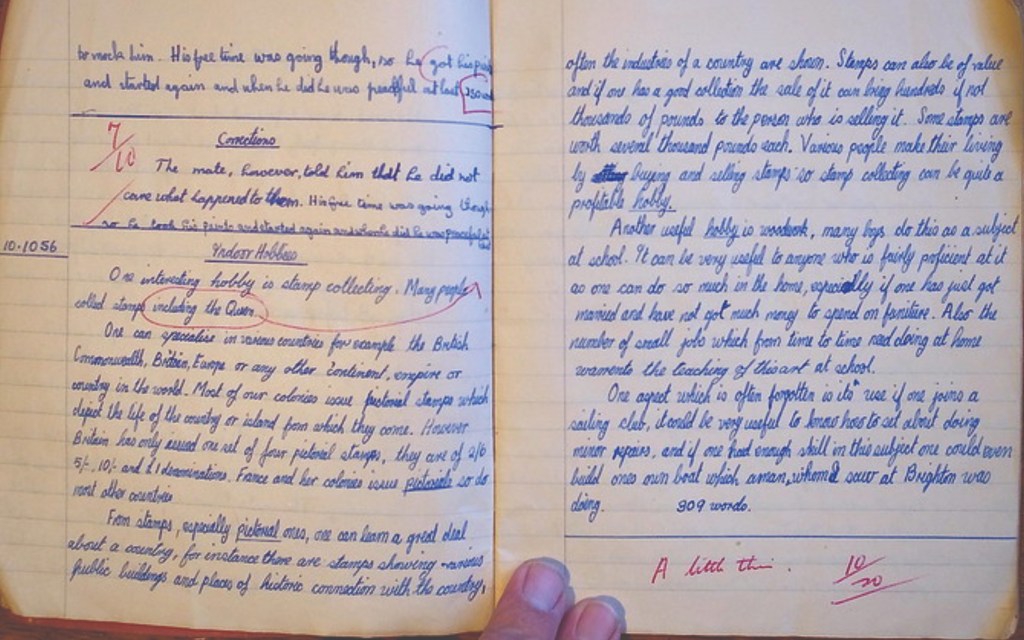 to mock him. His free time was going though, so he got his
and started again and when he did he was peacfful at last
7/10
Corrections
The mate, however, told him that he did not
care what happened to them. His free time was going though
so he took his paints and started again and when he did he was peaceful at last
10.10 56
Indoor Hobbies
One interesting hobby is stamp collecting. Many people
collect stamps including the Queen
One can specialise in various countries for example the British
Commonwealth, Britain, Europe or any other continent, empire or
country in the world. Most of our colonies issue pictorial stamps which
depict the life of the country or island from which they come. However
Britain has only issued one set of four pictorial stamps, they are of 2/6
5/-, 10/- and £1 denominations. France and her colonies issue pictorials so do
most other countries
From stamps, especially pictorial ones, one can learn a great deal
about a country, for instance there are stamps showing various
public buildings and places of historic connection with the country,
often the industries of a country are shown. Stamps can also be of value
and if one has a good collection the sale of it can bring hundreds if not
thousands of pounds to the person who is selling it. Some stamps are
worth several thousand pounds each. Various people make their living
by buying and selling stamps so stamp collecting can be quite a
profitable hobby.
Another useful hobby is woodwork, many boys do this as a subject
at school. It can be very useful to anyone who is fairly proficient at it
as one can do so much in the home, especially if one has just got
married and have not got much money to spend on furniture. Also the
number of small jobs which from time to time need doing at home
warrents the teaching of this art at school.
One aspect which is often forgotten is its use if one joins a
sailing club, it could be very useful to know how to set about doing
minor repairs, and if one had enough skill in this subject one could even
build ones own boat which a man, whom I saw at Brighton was
doing. 309 words.
A little thin. 10/20